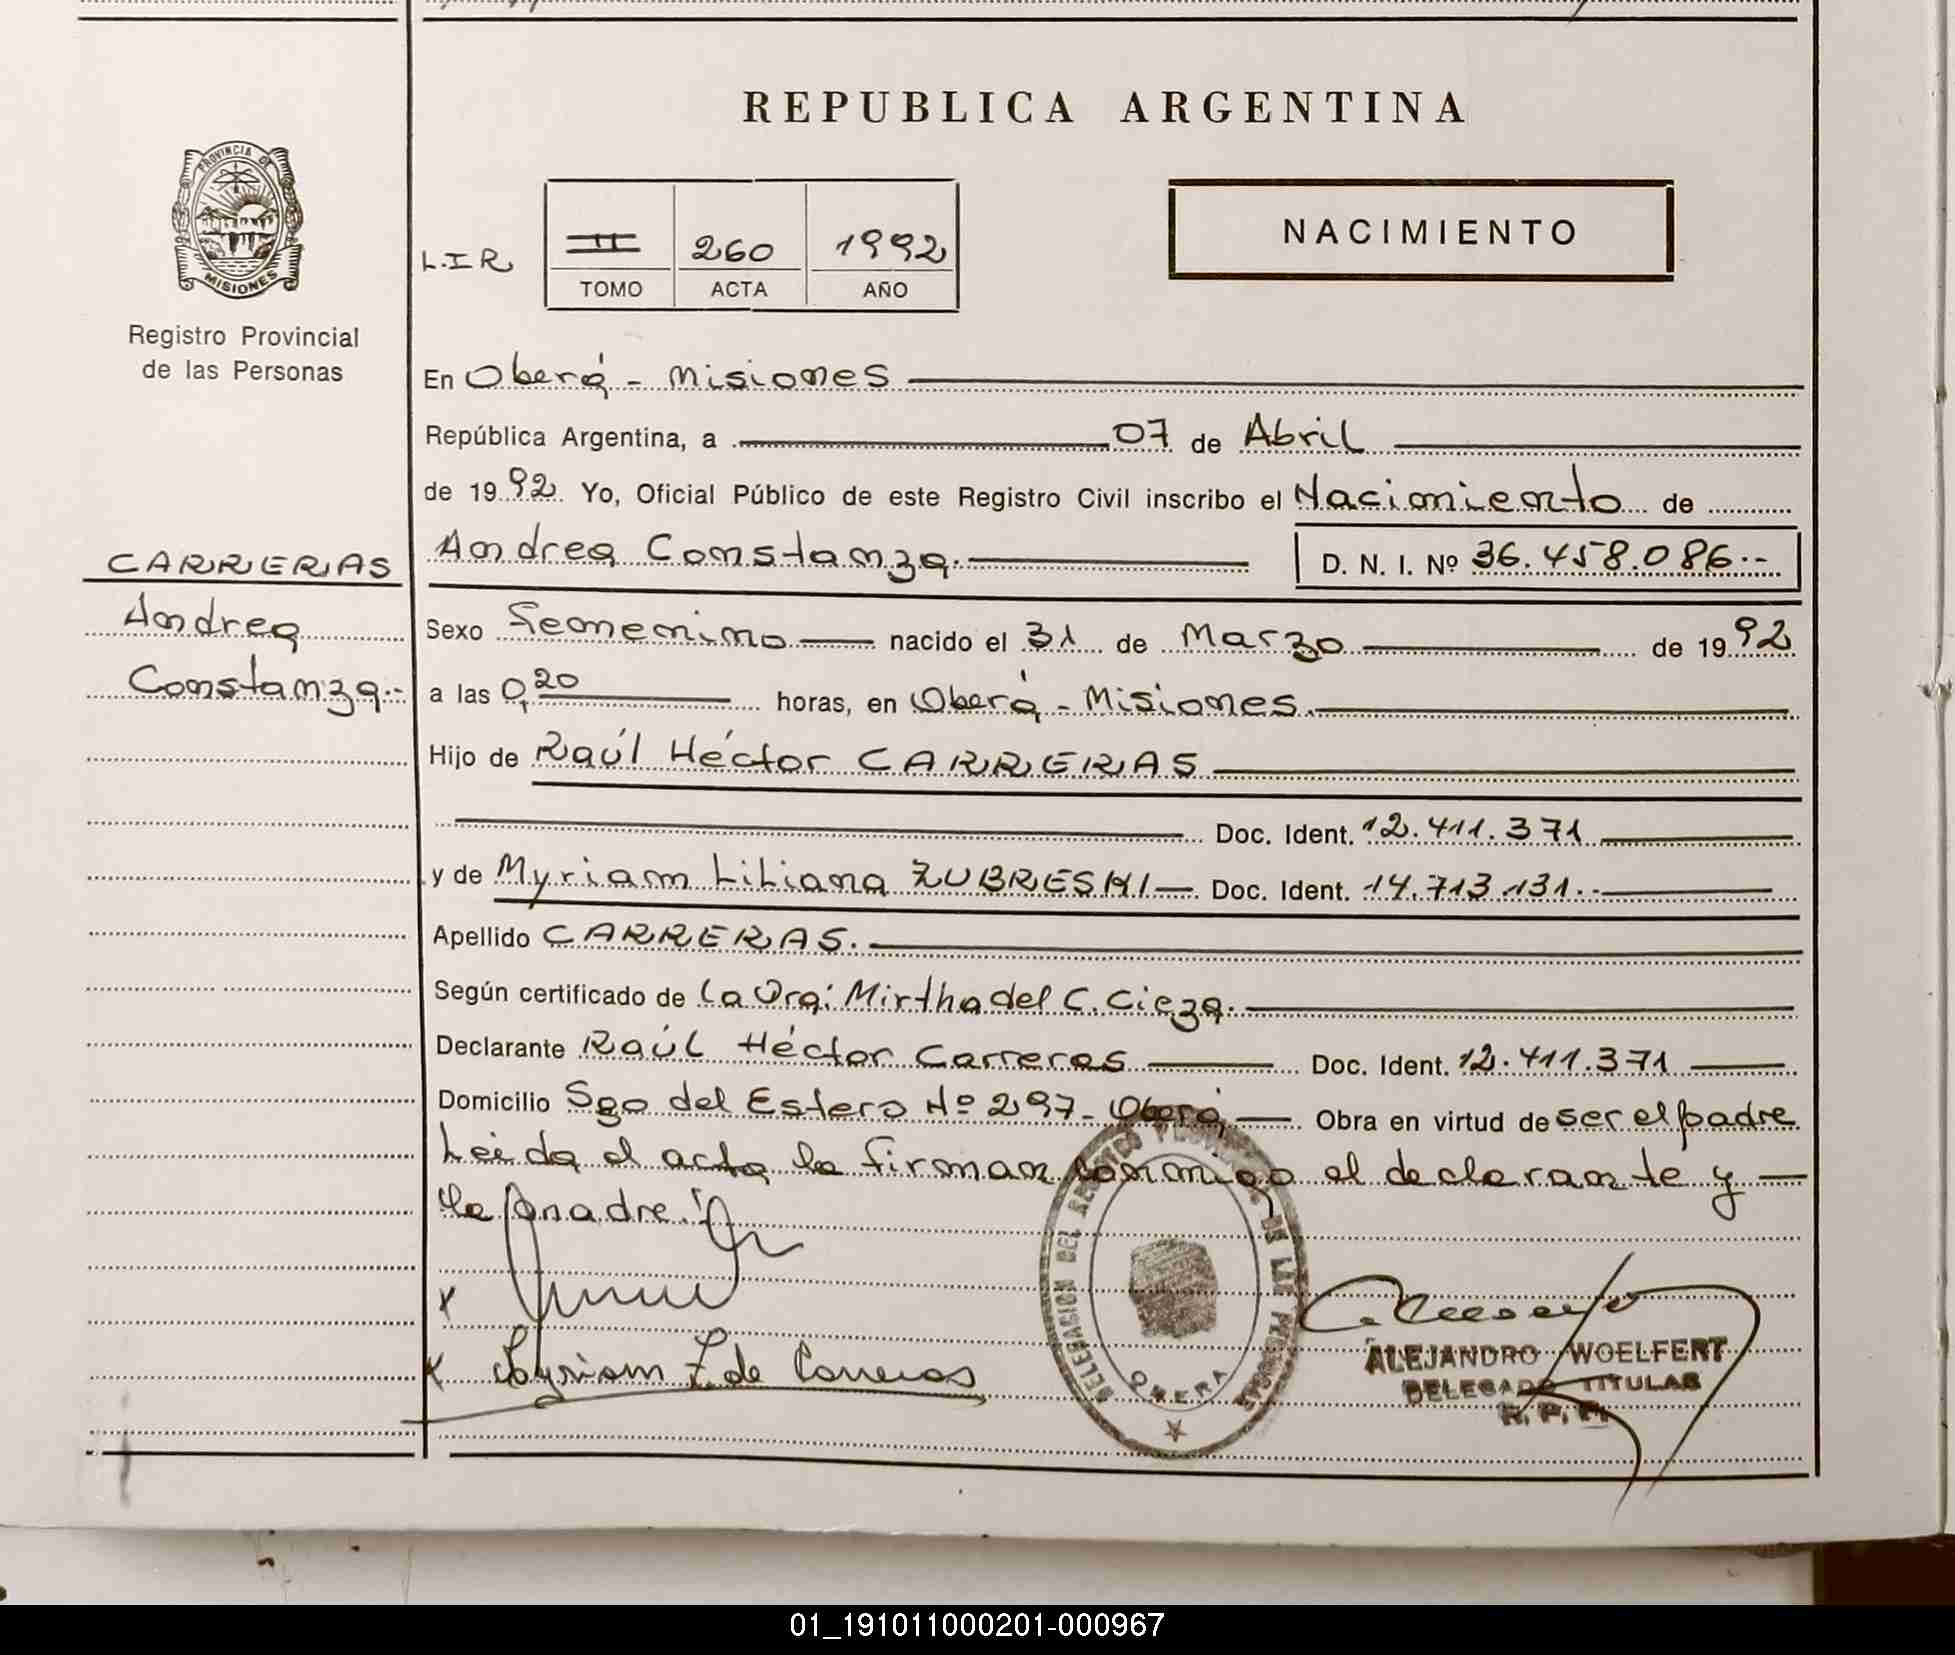 REPUBLICA ARGENTINA
PROVINCIA DE
MISIONES
Registro Provincial
de las Personas
L.I.R
II 260 1992
TOMO ACTA AÑO
NACIMIENTO
En Oberá - Misiones
República Argentina, a 07 de Abril
de 1992. Yo, Oficial Público de este Registro Civil inscribo el Nacimiento de
CARRERAS
Andrea
Constanza.-
Andrea Constanza.
D. N. I. Nº 36.458.086.--
Sexo Femenino nacido el 31 de Marzo de 1992
a las 0,20 horas, en Oberá - Misiones.
Hijo de Raúl Héctor CARRERAS
Doc. Ident. 12.411.371
y de Myriam Liliana ZUBRESKI Doc. Ident. 14.713.131.-
Apellido CARRERAS.
Según certificado de La Dra: Mirtha del C. Cieza.
Declarante Raúl Héctor Carreras Doc. Ident. 12.411.371
Domicilio Sgo del Estero Nº 297- Oberá Obra en virtud de ser el padre
Leída el acta la firman conmigo el declarante y
la madre.
x
x Myriam Z. de Carreras
DELEGACION DEL REGISTRO PROVINCIAL DE LAS PERSONAS
OBERA
ALEJANDRO WOELFERT
DELEGADO TITULAR
R. P. P.
01_191011000201-000967